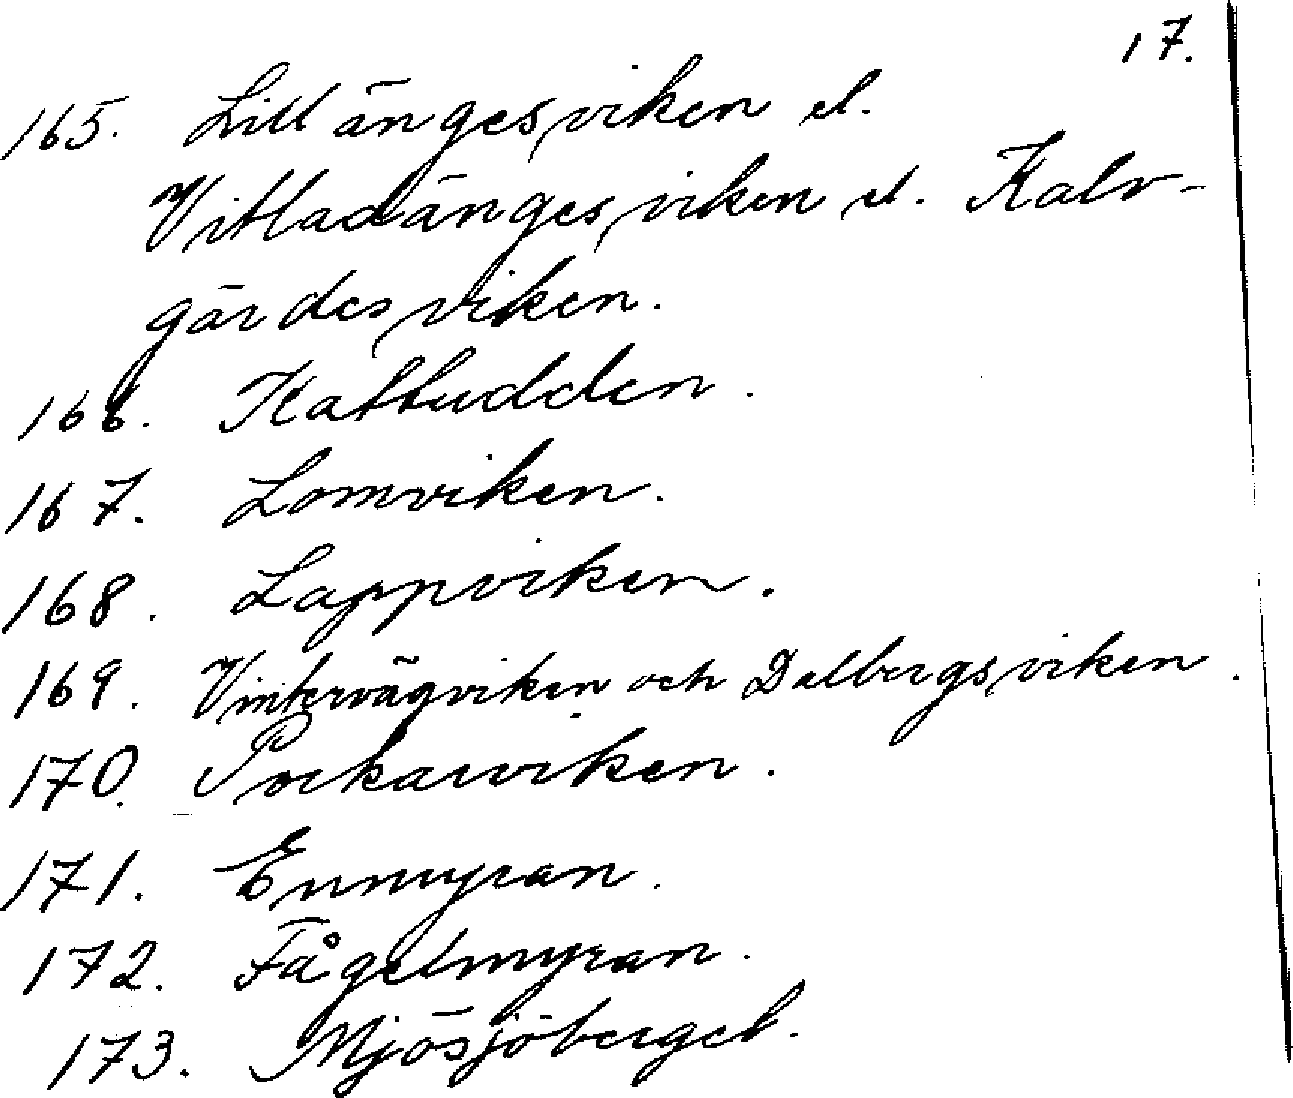 17.
165. Lillängesviken el.
Vitladängesviken el. Kalv-
gärdesviken.
166. Kattudden.
167. Lomviken.
168. Lappviken.
169. Vintervägviken och Dalbergsviken.
170.
171. Enmyran.
172. Fågelmyran.
173. Mjösjöberget.